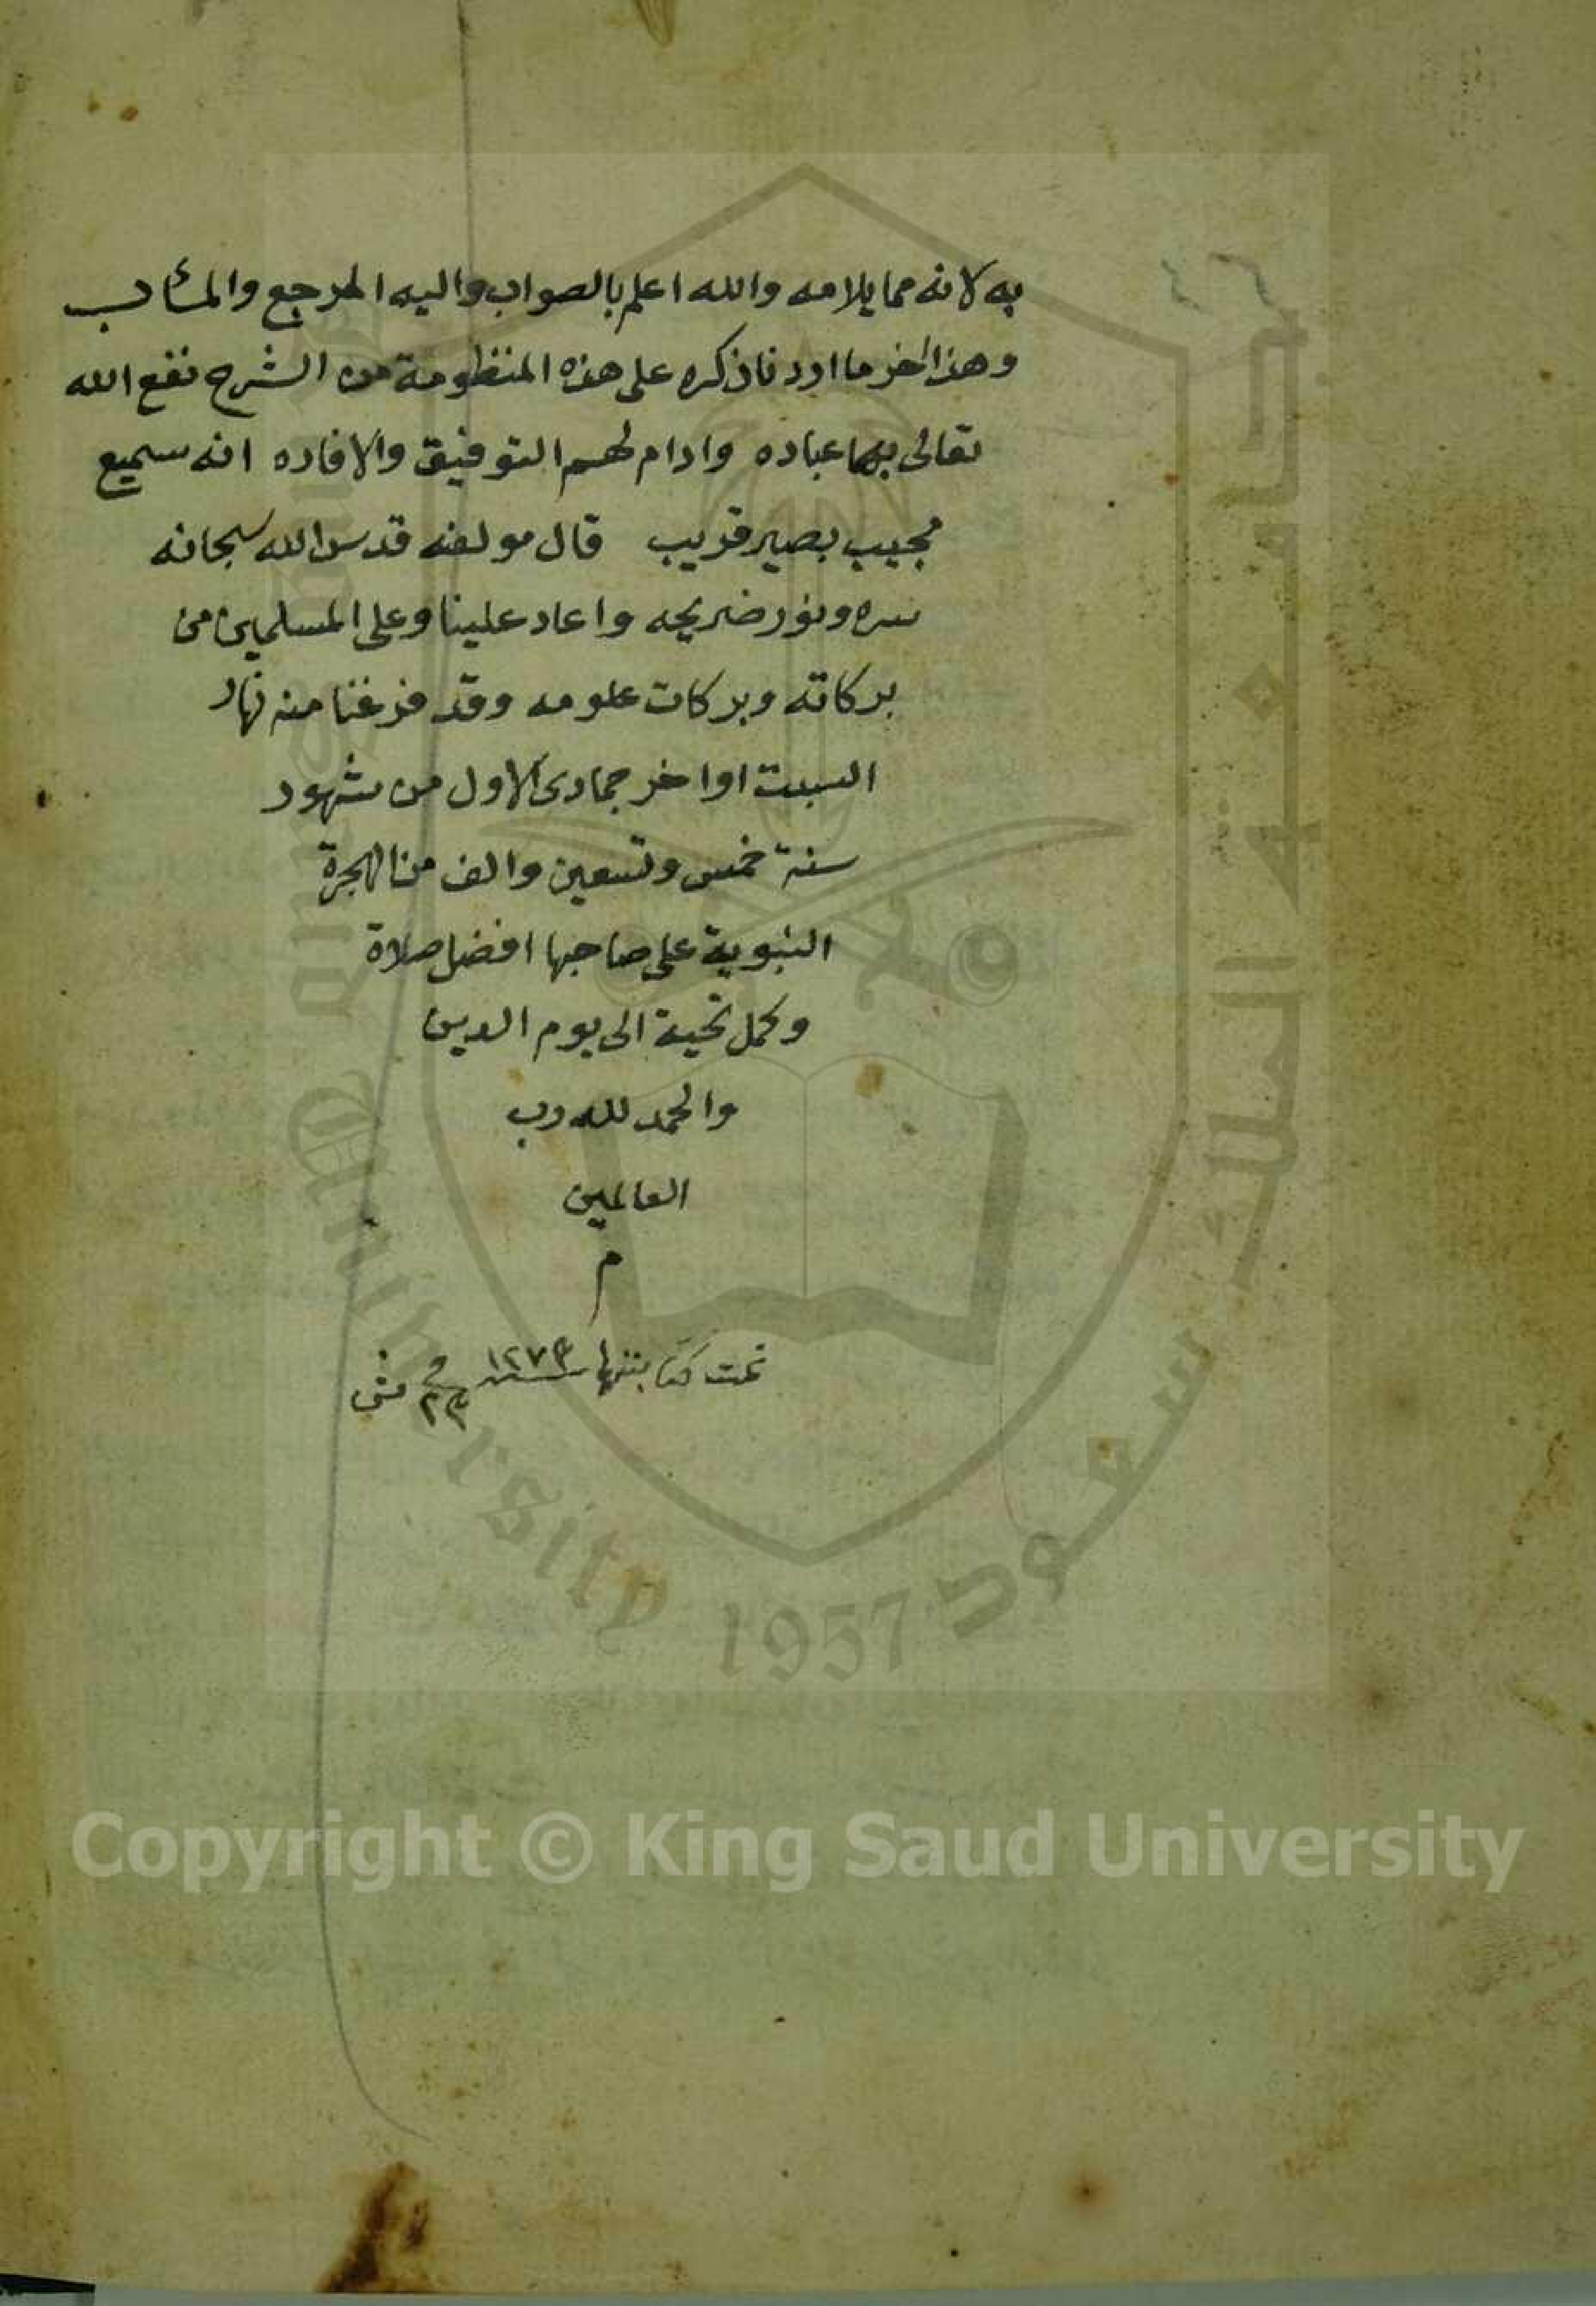 به لانه مما يلامه والله اعلم بالصواب واليه المرجع والمئاب
وهذا اخر ما اردنا ذكره على هذه المنظومة من الشرح نفع الله
تعالى بهما عباده وادام لهم التوفيق والافاده انه سميع
مجيب بصير قريب قال مولفه قدس الله سبحانه
سره ونور ضريحه واعاد علينا وعلى المسلمين من
بركاته وبركات علومه وقد فرغنا منه نهار
السبت اواخر جمادى الاول من شهور
سنة خمس وتسعين والف من الهجرة
النبوية على صاحبها افضل صلاة
وكمل تحية الى يوم الدين
والحمد لله رب
العالمين
م
تمت كتابتها سنة ١٢٧٣ ٢٣
جامعة الملك سعود
King Saud University 1957
Copyright © King Saud University